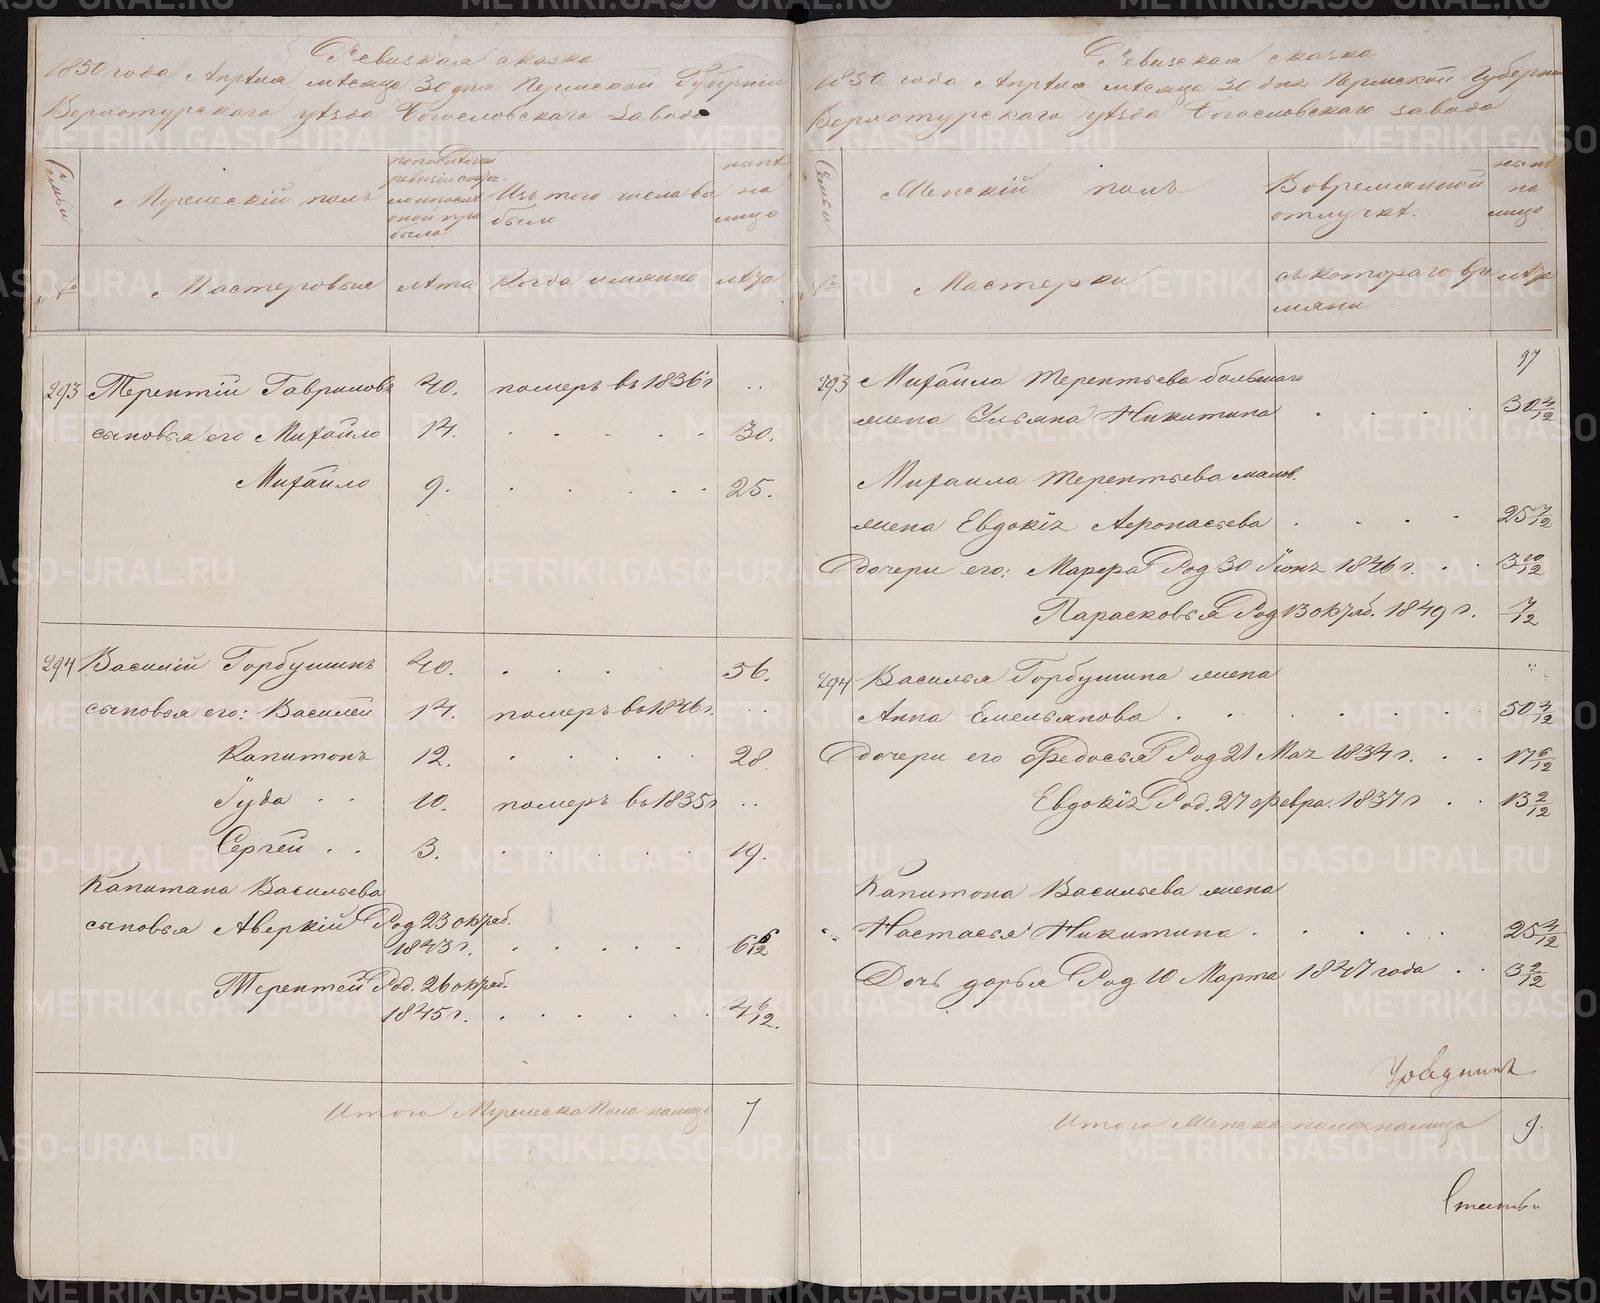 Ревизская сказка
1850 года Апрѣля мѣсяца 30 дня Пермской Губерніи
Верхотурскаго уѣзда Богословскаго завода
Семьи
Мужескій полъ
по последней ревизіи состояло и после оной прибыло
Изъ того числа выбыло
нынѣ на лицо
№
Мастеровые
лѣта
Когда имянно
лѣта
293 Терентій Гавриловъ 40. померъ въ 1836 г. ..
сыновья его Михайло 14. . . . . . 30.
Михайло 9. . . . . . 25.
294 Василій Горбушинъ 40. . . . 56.
сыновья его: Василей 14. померъ въ 1846 г. ..
Капитонъ 12. . . . . . 28.
Іуда . . 10. померъ въ 1835 г ..
Сергей . . 3. . . . . . 19.
Капитана Васильева
сыновья Аверкій Род 23 октяб.
1843 г. . . . . . 6 6/12
Терентей Род. 26 октяб.
1845 г. . . . . . 4 6/12.
Итого Мужеска Пола налицо 7.
Ревизская сказка
1850 года Апрѣля мѣсяца 30 дня Пермской Губерніи
Верхотурскаго уѣзда Богословскаго завода
Семьи
Женскій полъ
Во временной отлучкѣ.
нынѣ на лицо
№
Мастерки
съ котораго времяни
лѣта
97
293 Михаила Терентьева большаго
жена Ульяна Никитина . . . . 30 4/12
Михаила Терентьева малов.
жена Евдокія Аеропасьева . . . . 25 7/12
Дочери его: Марфа Род 30 Іюня 1846 г. . . 3 10/12
Парасковья Род 13 октяб. 1849 г. 7/12
294 Василья Горбушина жена
Анна Емельянова . . . . . . 50 4/12
Дочери его Федосья Род 21 Мая 1834 г. . . 17 6/12
Евдокія Род. 27 февра. 1837 г . . 13 2/12
Капитона Васильева жена
Настасья Никитина . . . . . 25 4/12
Дочь дарья Род 10 Марта 1847 года . . 3 2/12
Итого Женска пола налицо 9.
METRIKI.GASO-URAL.RU